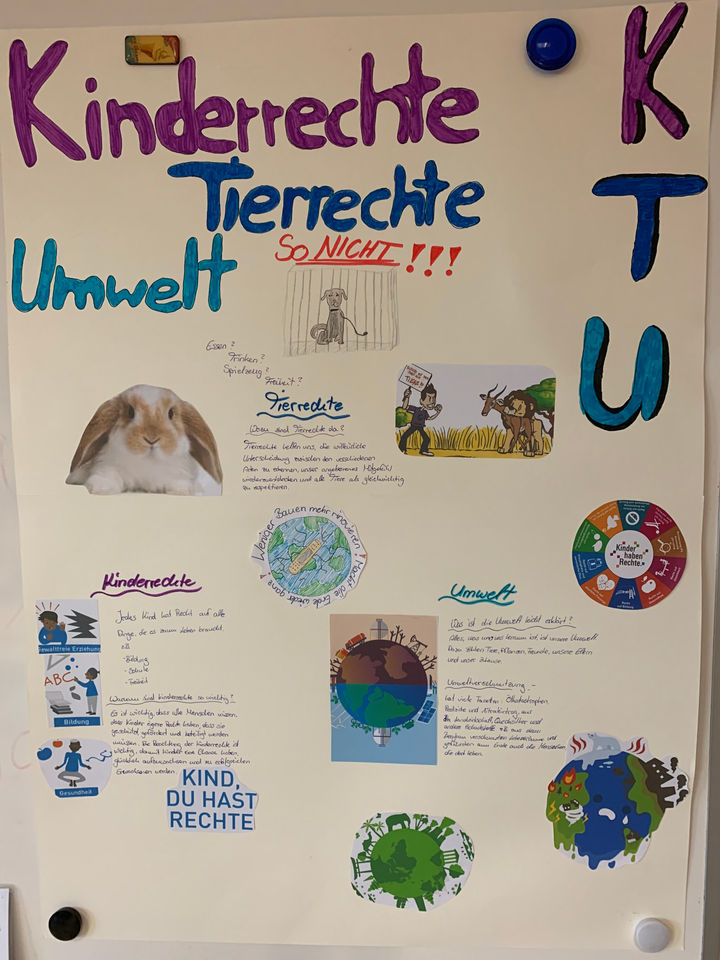 Kinderrechte
Tierrechte
Umwelt
K
T
U
SO NICHT!!!
Essen?
Trinken?
Spielzeug?
Freiheit?
Tierrechte
Wozu sind Tierrechte da?
Tierrechte helfen uns, die willkürliche
Unterscheidung zwischen den verschiedenen
Arten zu erkennen, unser angeborenes Mitgefühl
wiederzuentdecken und alle Tiere als gleichwichtig
zu respektieren.
TIERE
Weniger Bauen mehr renovieren
Macht die Erde wieder ganz
Kinder
haben
Rechte.
Kinderrechte
Gewaltfreie Erziehung
ABC
Bildung
Gesundheit
Jedes Kind hat Recht auf alle
Dinge, die es zum Leben braucht.
zB
-Bildung
-Schule
-Freiheit
Warum sind Kinderrechte so wichtig?
Es ist wichtig, dass alle Menschen wissen,
dass Kinder eigene Rechte haben, dass sie
geschützt, gefördert und beteiligt werden
müssen. Die Beachtung der Kinderrechte ist
wichtig, damit Kinder eine Chance haben,
glücklich aufzuwachsen und zu erfolgreichen
Erwachsenen werden.
KIND,
DU HAST
RECHTE
Umwelt
Was ist die Umwelt leicht erklärt?
Alles, was um uns herum ist, ist unsere Umwelt.
Dazu zählen Tiere, Pflanzen, Freunde, unsere Eltern
und unser Zuhause.
Umweltverschmutzung -
hat viele Facetten: Ölkatastrophen,
Pestizide und Nitrateintrag aus
der Landwirtschaft, Quecksilber und
andere Schadstoffe zB aus dem
Bergbau verschmutzen Lebensräume und
gefährden am Ende auch die Menschen,
die dort leben.